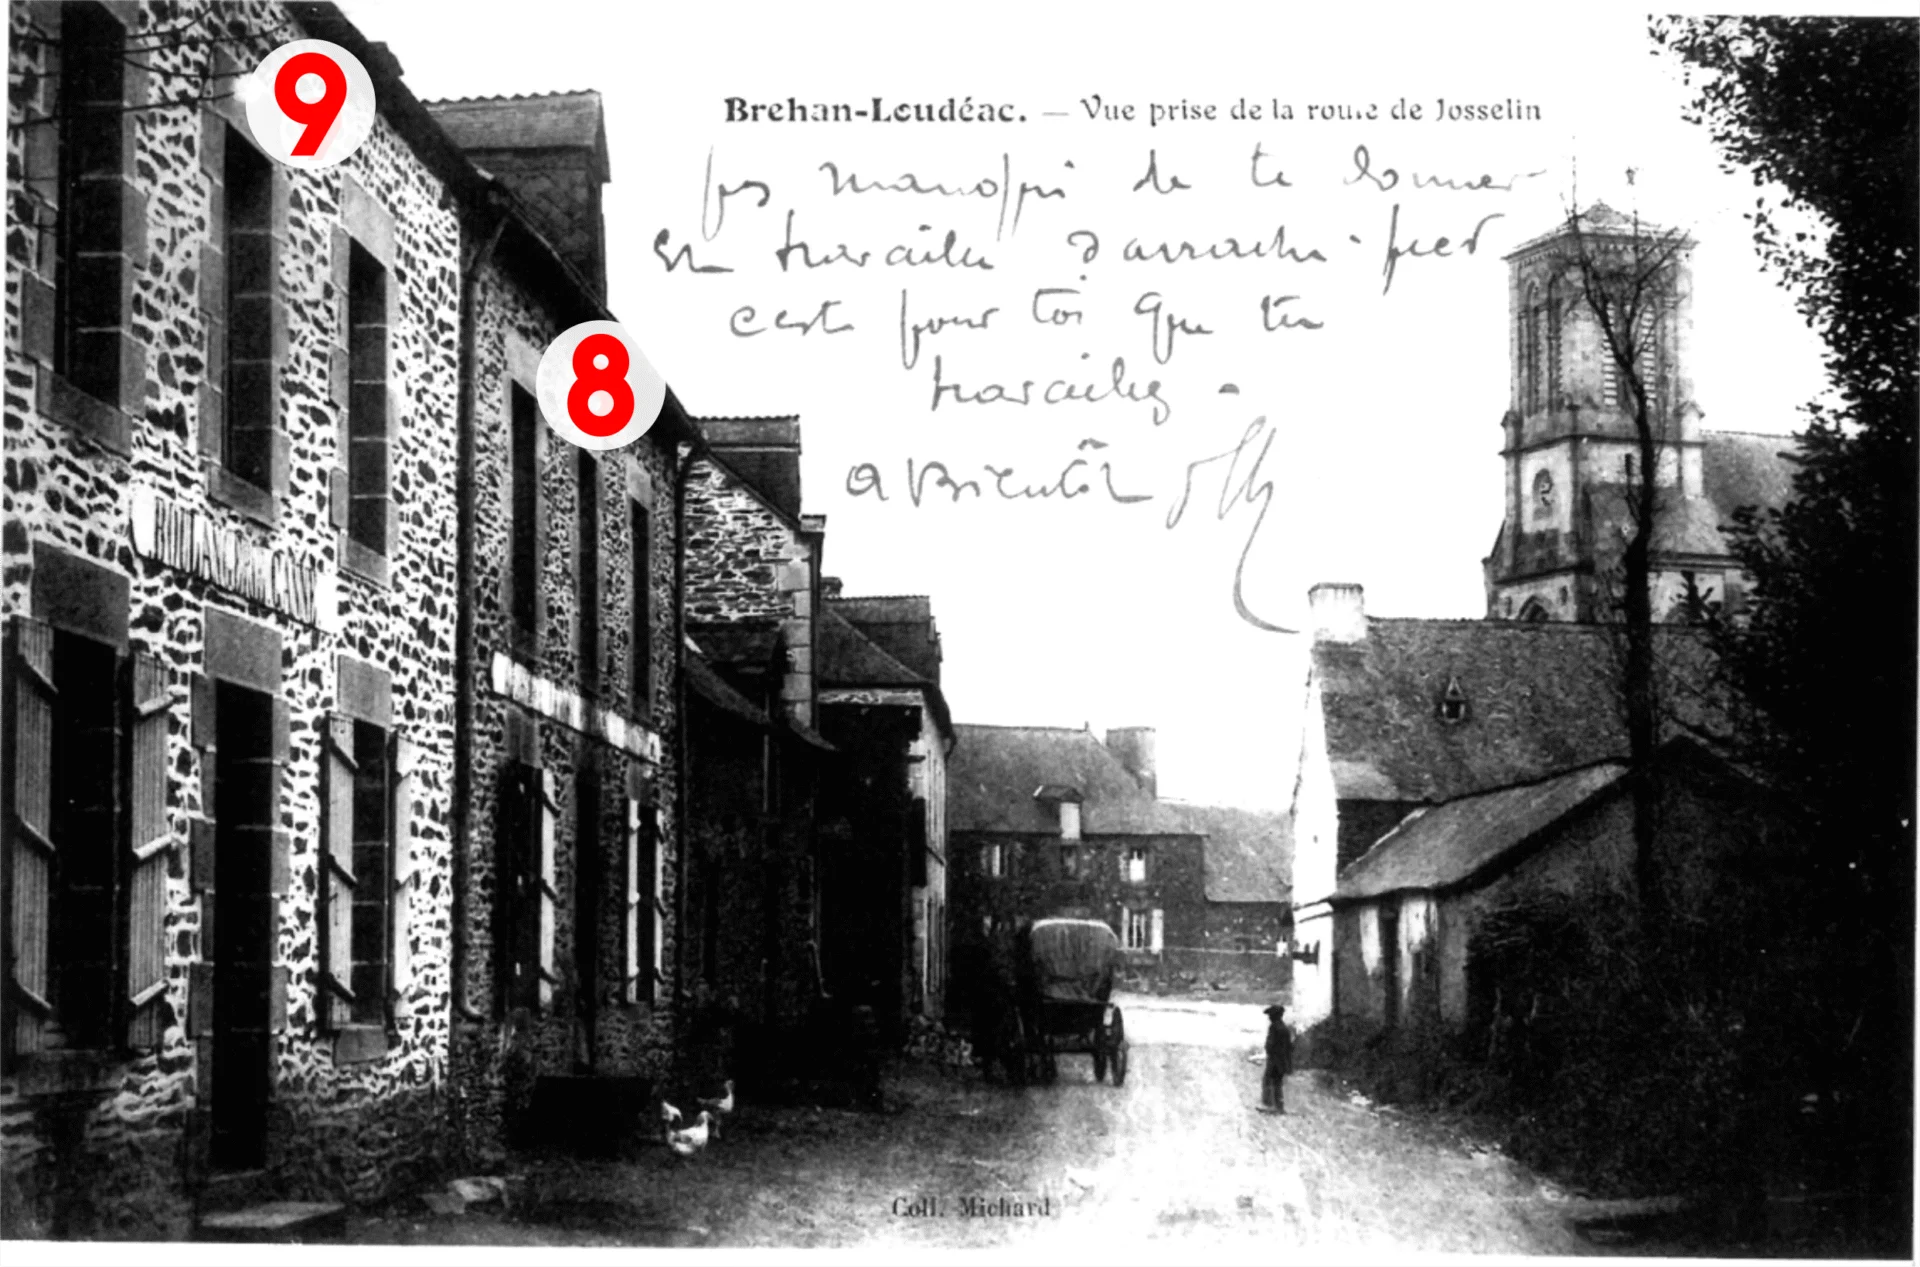 9
8
Brehan-Loudéac. — Vue prise de la route de Josselin
pas de te donner
en travaille d'arrache-pied
c'est pour toi que tu
travailles -
A Bientôt
BOULANGERIE
Coll. Michard